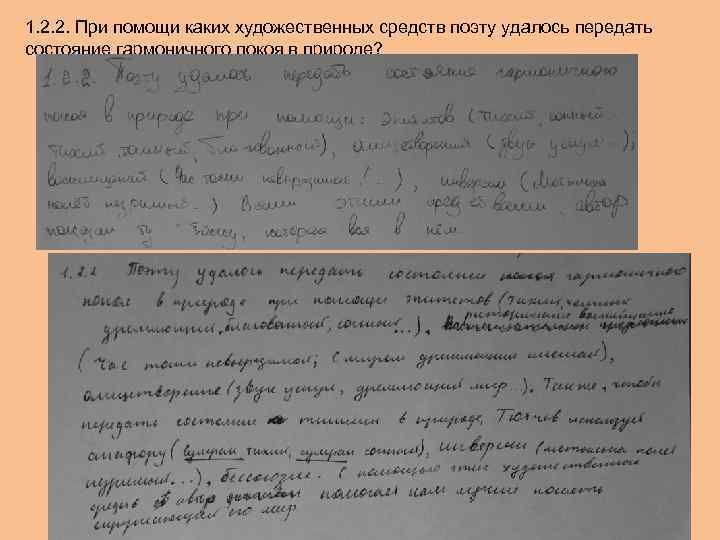 1. 2. 2. При помощи каких художественных средств поэту удалось передать
состояние гармоничного покоя в природе?
1.2.2. Поэту удалось передать состояние гармоничного
покоя в природе при помощи: эпитетов (тихий, сонный
тихий, томный, благовонный), олицетворения (звук уснул...);
восклицаний (Час тоски невыразимой!..), инверсии (Мотылька
полёт незримый..) Всеми этими средствами, автор
показал ту, которая вся в нём.
1.2.2 Поэту удалось передать состояние гармоничного
покоя в природе при помощи эпитетов (тихий,
дремлющий, благовонный, сонный...), риторические восклицания
(Час тоски невыразимой; С миром дремлющим смешай),
олицетворение (звук уснул, дремлющий мир...). Также, чтобы
передать состояние тишины в природе, Тютчев использует
анафору (сумрак тихий, сумрак сонный), инверсии (мотылька полет
незримый...), бессоюзие. С помощью этих художественных
средств автор помогает нам лучше понять
окружающий его мир